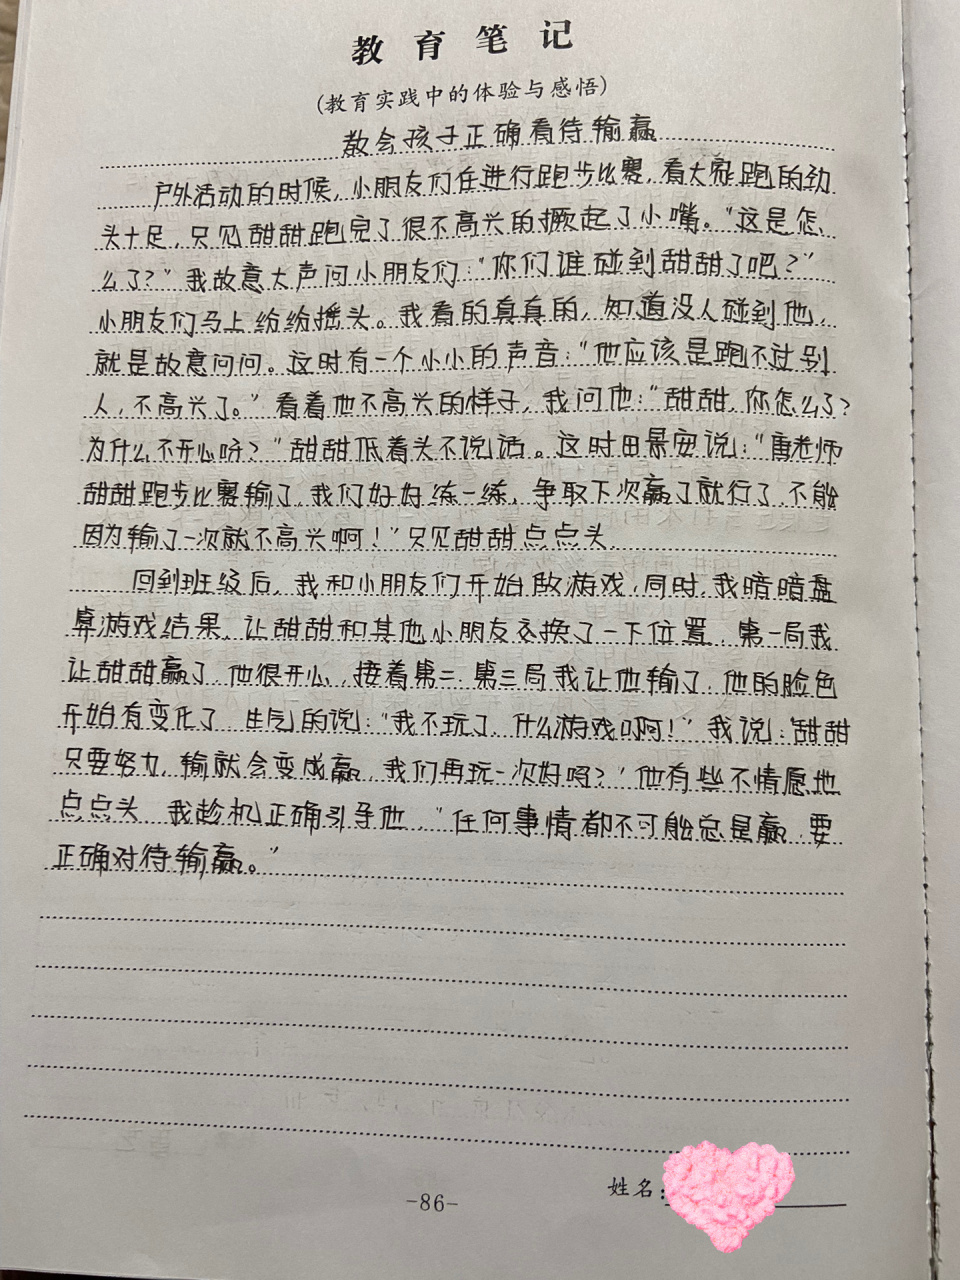 教育笔记
(教育实践中的体验与感悟)
教会孩子正确看待输赢
户外活动的时候,小朋友们在进行跑步比赛,看大家跑的劲
头十足,只见甜甜跑完了很不高兴的撅起了小嘴。“这是怎
么了?”我故意大声问小朋友们:“你们谁碰到甜甜了吧?”
小朋友们马上纷纷摇头。我看的真真的,知道没人碰到他,
就是故意问问。这时有一个小小的声音:“他应该是跑不过别
人,不高兴了。”看着他不高兴的样子,我问他:“甜甜,你怎么了?
为什么不开心呀?”甜甜低着头不说话。这时田景安说:“唐老师
甜甜跑步比赛输了,我们好好练一练,争取下次赢了就行了,不能
因为输了一次就不高兴啊!”只见甜甜点点头.
回到班级后,我和小朋友们开始做游戏,同时,我暗暗盘
算游戏结果,让甜甜和其他小朋友交换了一下位置,第一局我
让甜甜赢了,他很开心,接着第二.第三局我让他输了,他的脸色
开始有变化了,生气的说:“我不玩了,什么游戏啊!”我说:“甜甜
只要努力,输就会变成赢,我们再玩一次好吗?”他有些不情愿地
点点头,我趁机正确引导他,“任何事情都不可能总是赢,要
正确对待输赢。”
姓名:
-86-